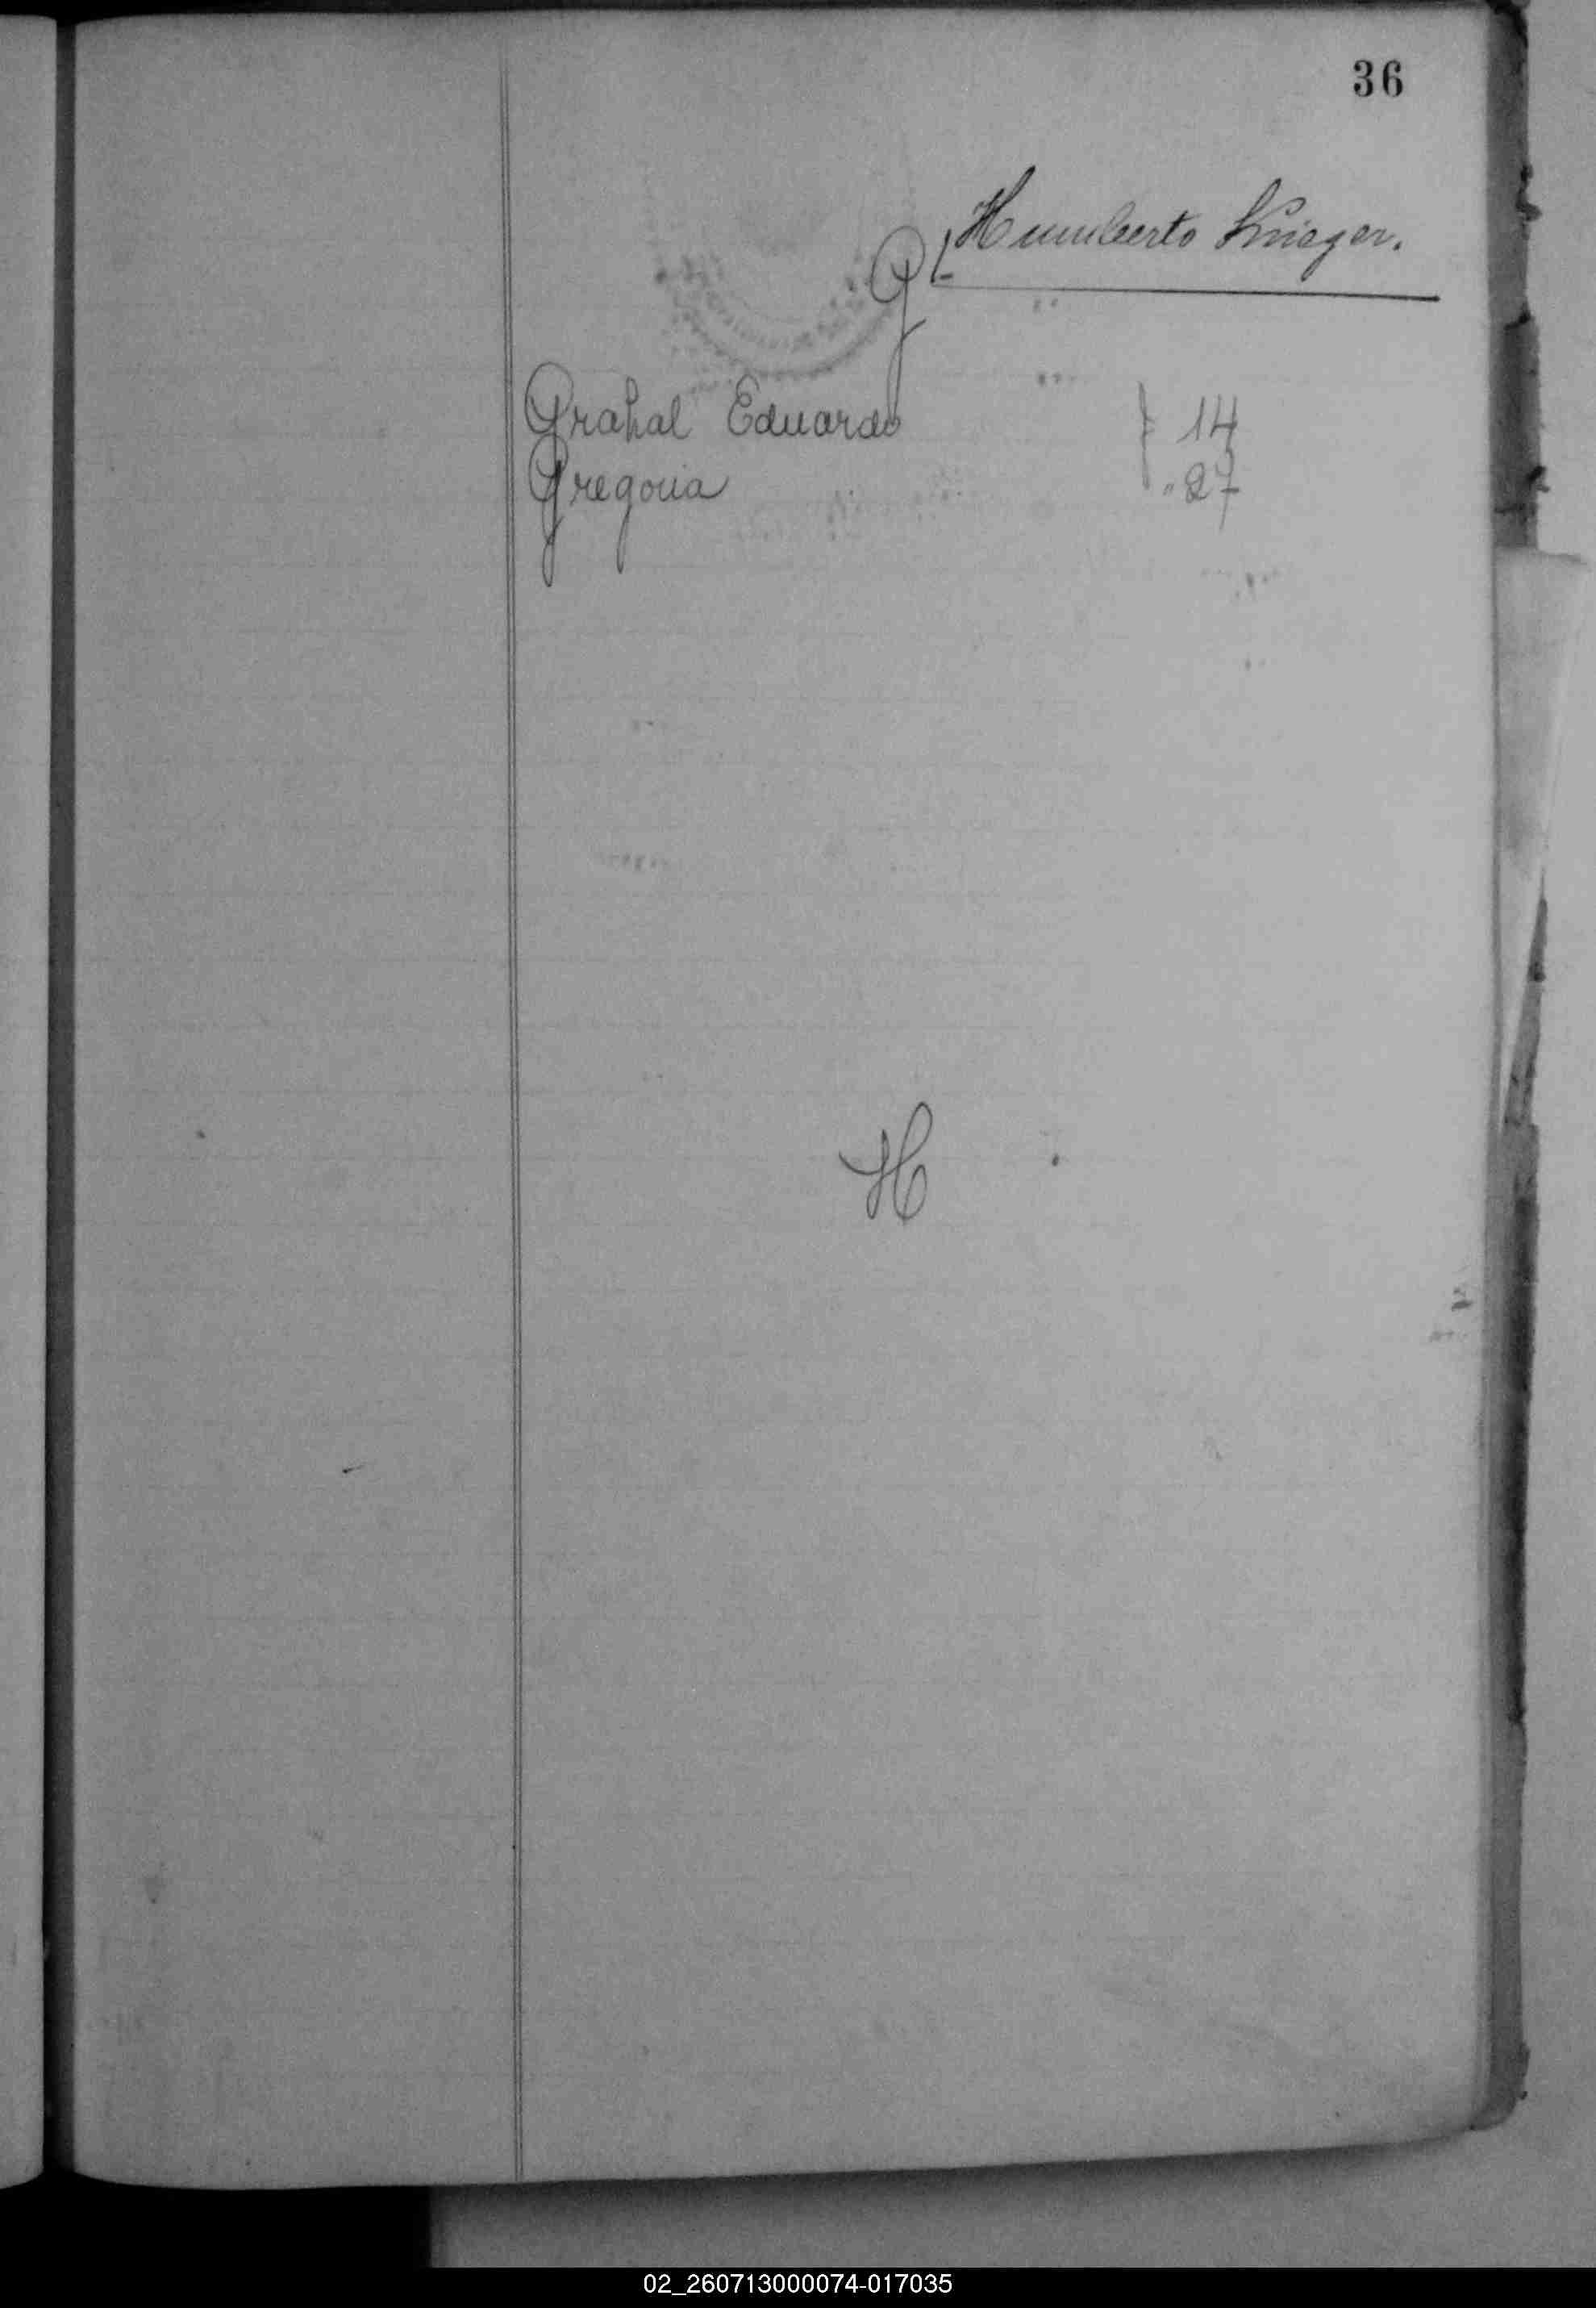 36
Humberto Krieger.
G
Grahal Eduardo f 14
Gregoria " 27
H
02_260713000074-017035